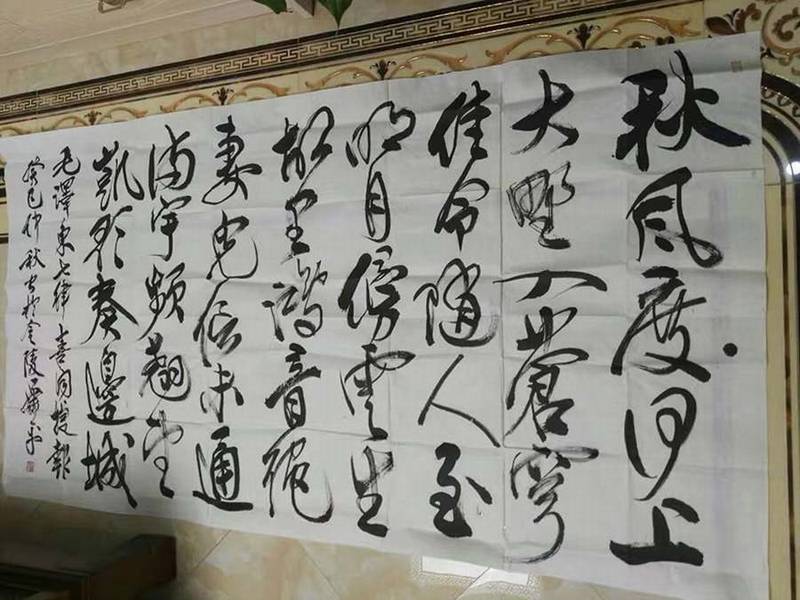 秋風度河上
大野入蒼穹
佳令隨人至
明月傍雲生
故里鴻音絕
妻兒信未通
滿宇頻翹望
凱歌奏邊城
毛澤東七律喜聞捷報
癸巳仲秋書於金陵